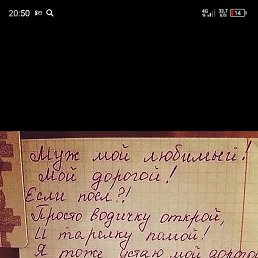 20:50
4G 32.7 K/S 14
Муж мой любимый!
Мой дорогой!
Если поел?!
Просто водичку открой,
И тарелку помой!
Я тоже устаю мой дорогой